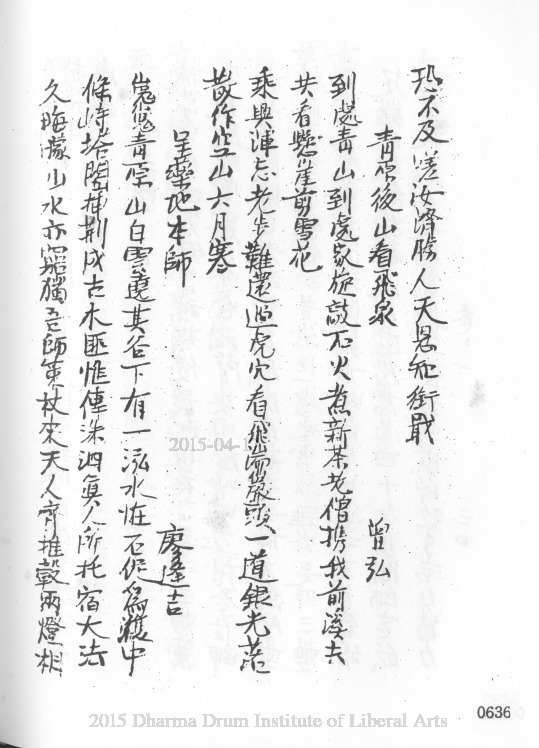 恐不及嗟汝濟勝人天恩知銜戢
青原後山看飛泉
曾弘
到處青山到處家旋敲石火煮新茶老僧携我前溪去
共看懸崖剪雪花
乘興渾忘老步難還過虎穴看飛湍巖頭一道銀光落
散作空山六月寒
呈藥地本師
廖逢吉
嵬嵬青原山白雲遶其谷下有一泓水怪石促為
中
條峙塔開插荆成古木匪惟傳洙泗真人所托宿大法
久晦朦山水亦窮獨吾師策杖來天人齊推轂兩燈相
2015-04-1
0636
2015 Dharma Drum Institute of Liberal Arts